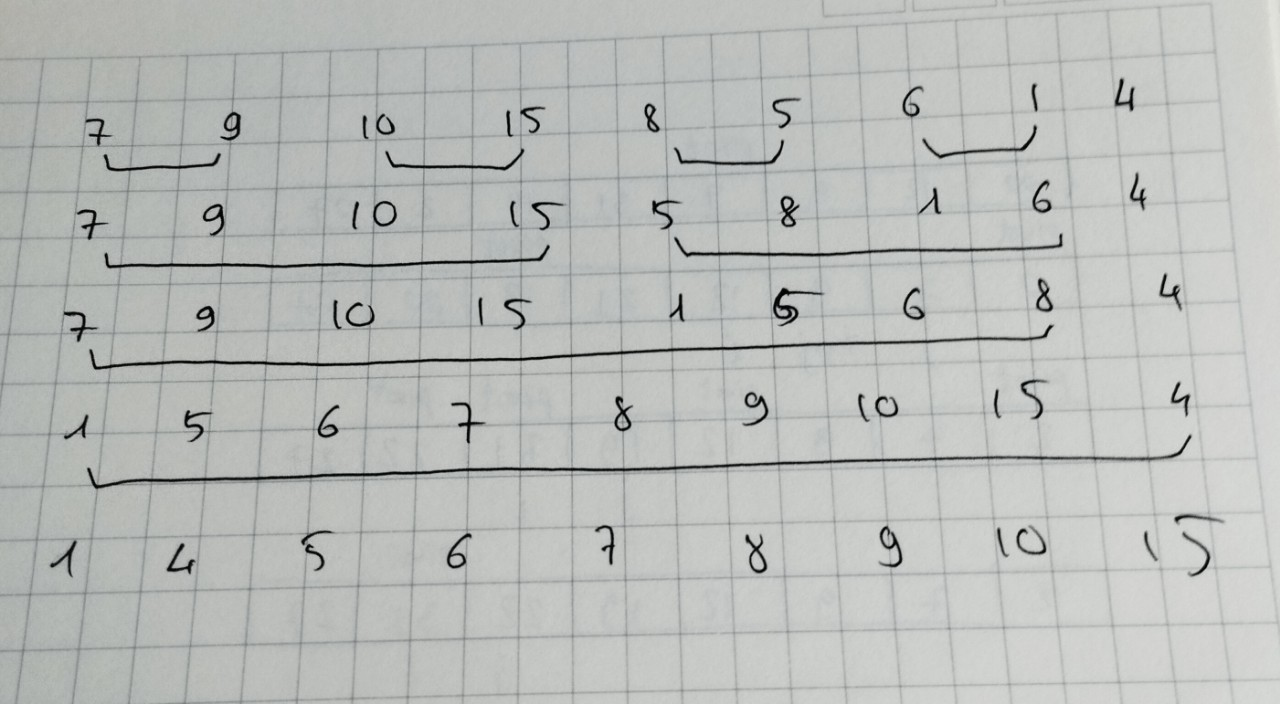 7 9 10 15 8 5 6 1 4
7 9 10 15 5 8 1 6 4
7 9 10 15 1 5 6 8 4
1 5 6 7 8 9 10 15 4
1 4 5 6 7 8 9 10 15